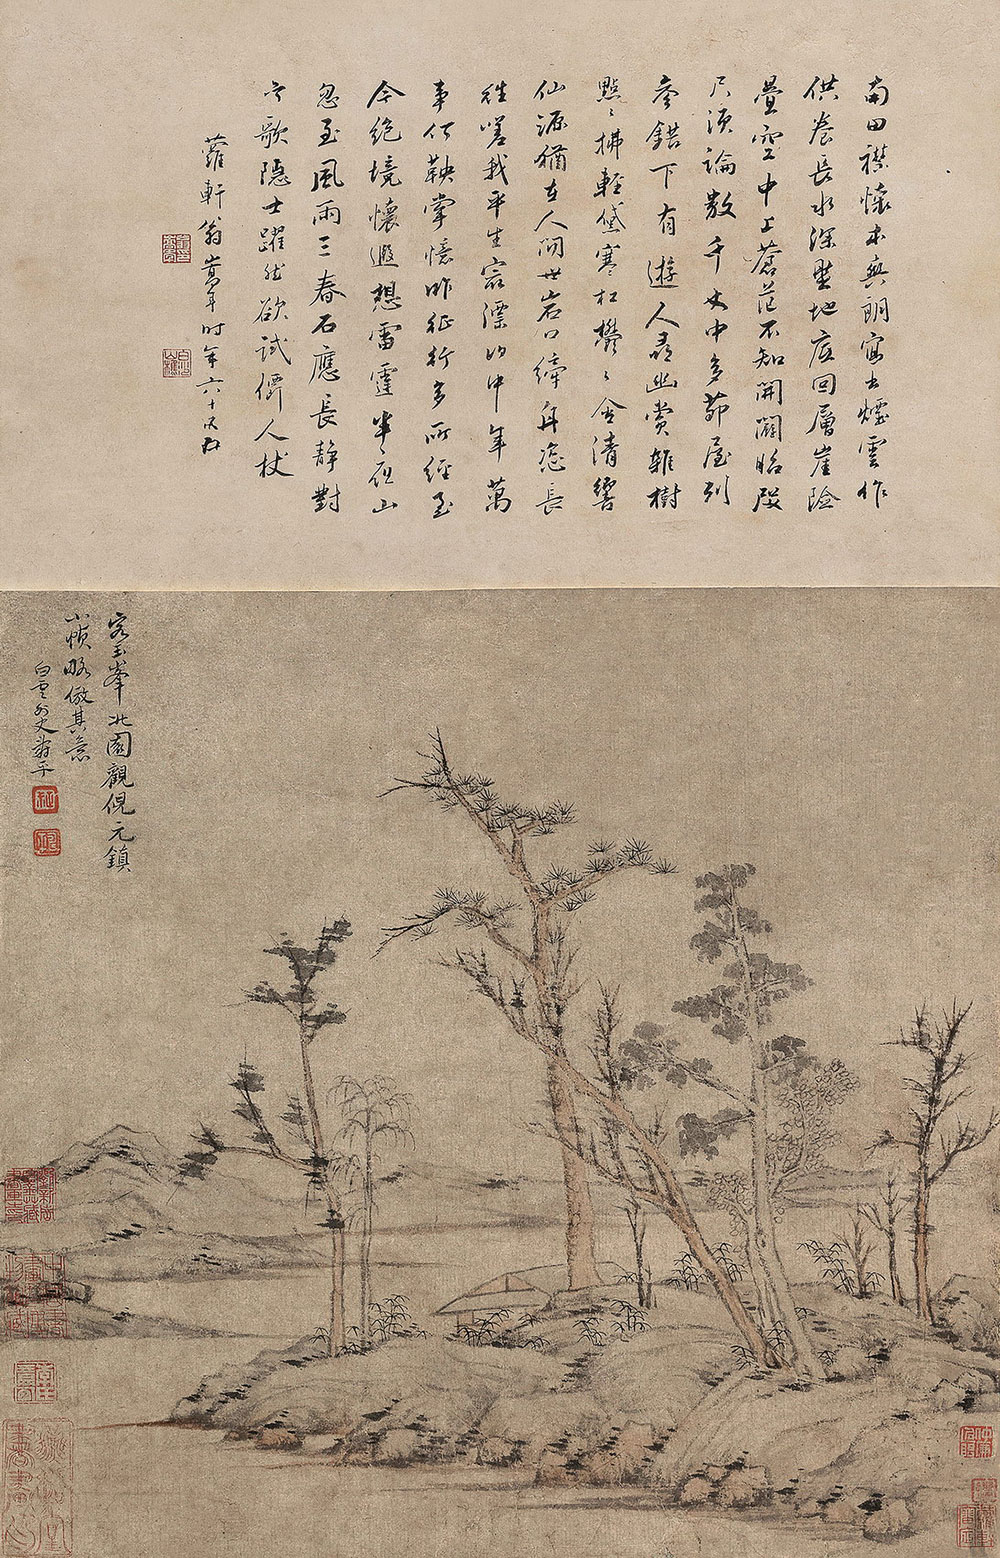 南田襟懷本與朗寫出煙雲作
供養長水深埜地底回層崖險
疊空中上蒼茫不知開闢始咫
尺須論數千丈中多茆屋列
參錯下有遊人尋幽賞雜樹
點〻拂輕黛寒松鬱〻含清響
仙源猶在人間世岩口緯舟恣長
往嗟我平生實漂泊中年萬
事付鞅掌憶昨征行多所經至
今絕境懷遐想雷霆半在山
忽至風雨三春石應長靜對
歌隱士躍然欲試仙人杖
蘿軒翁嵩年時年六十
客玉峯北園觀倪元鎮
小幀略倣其意
白雲外史壽平